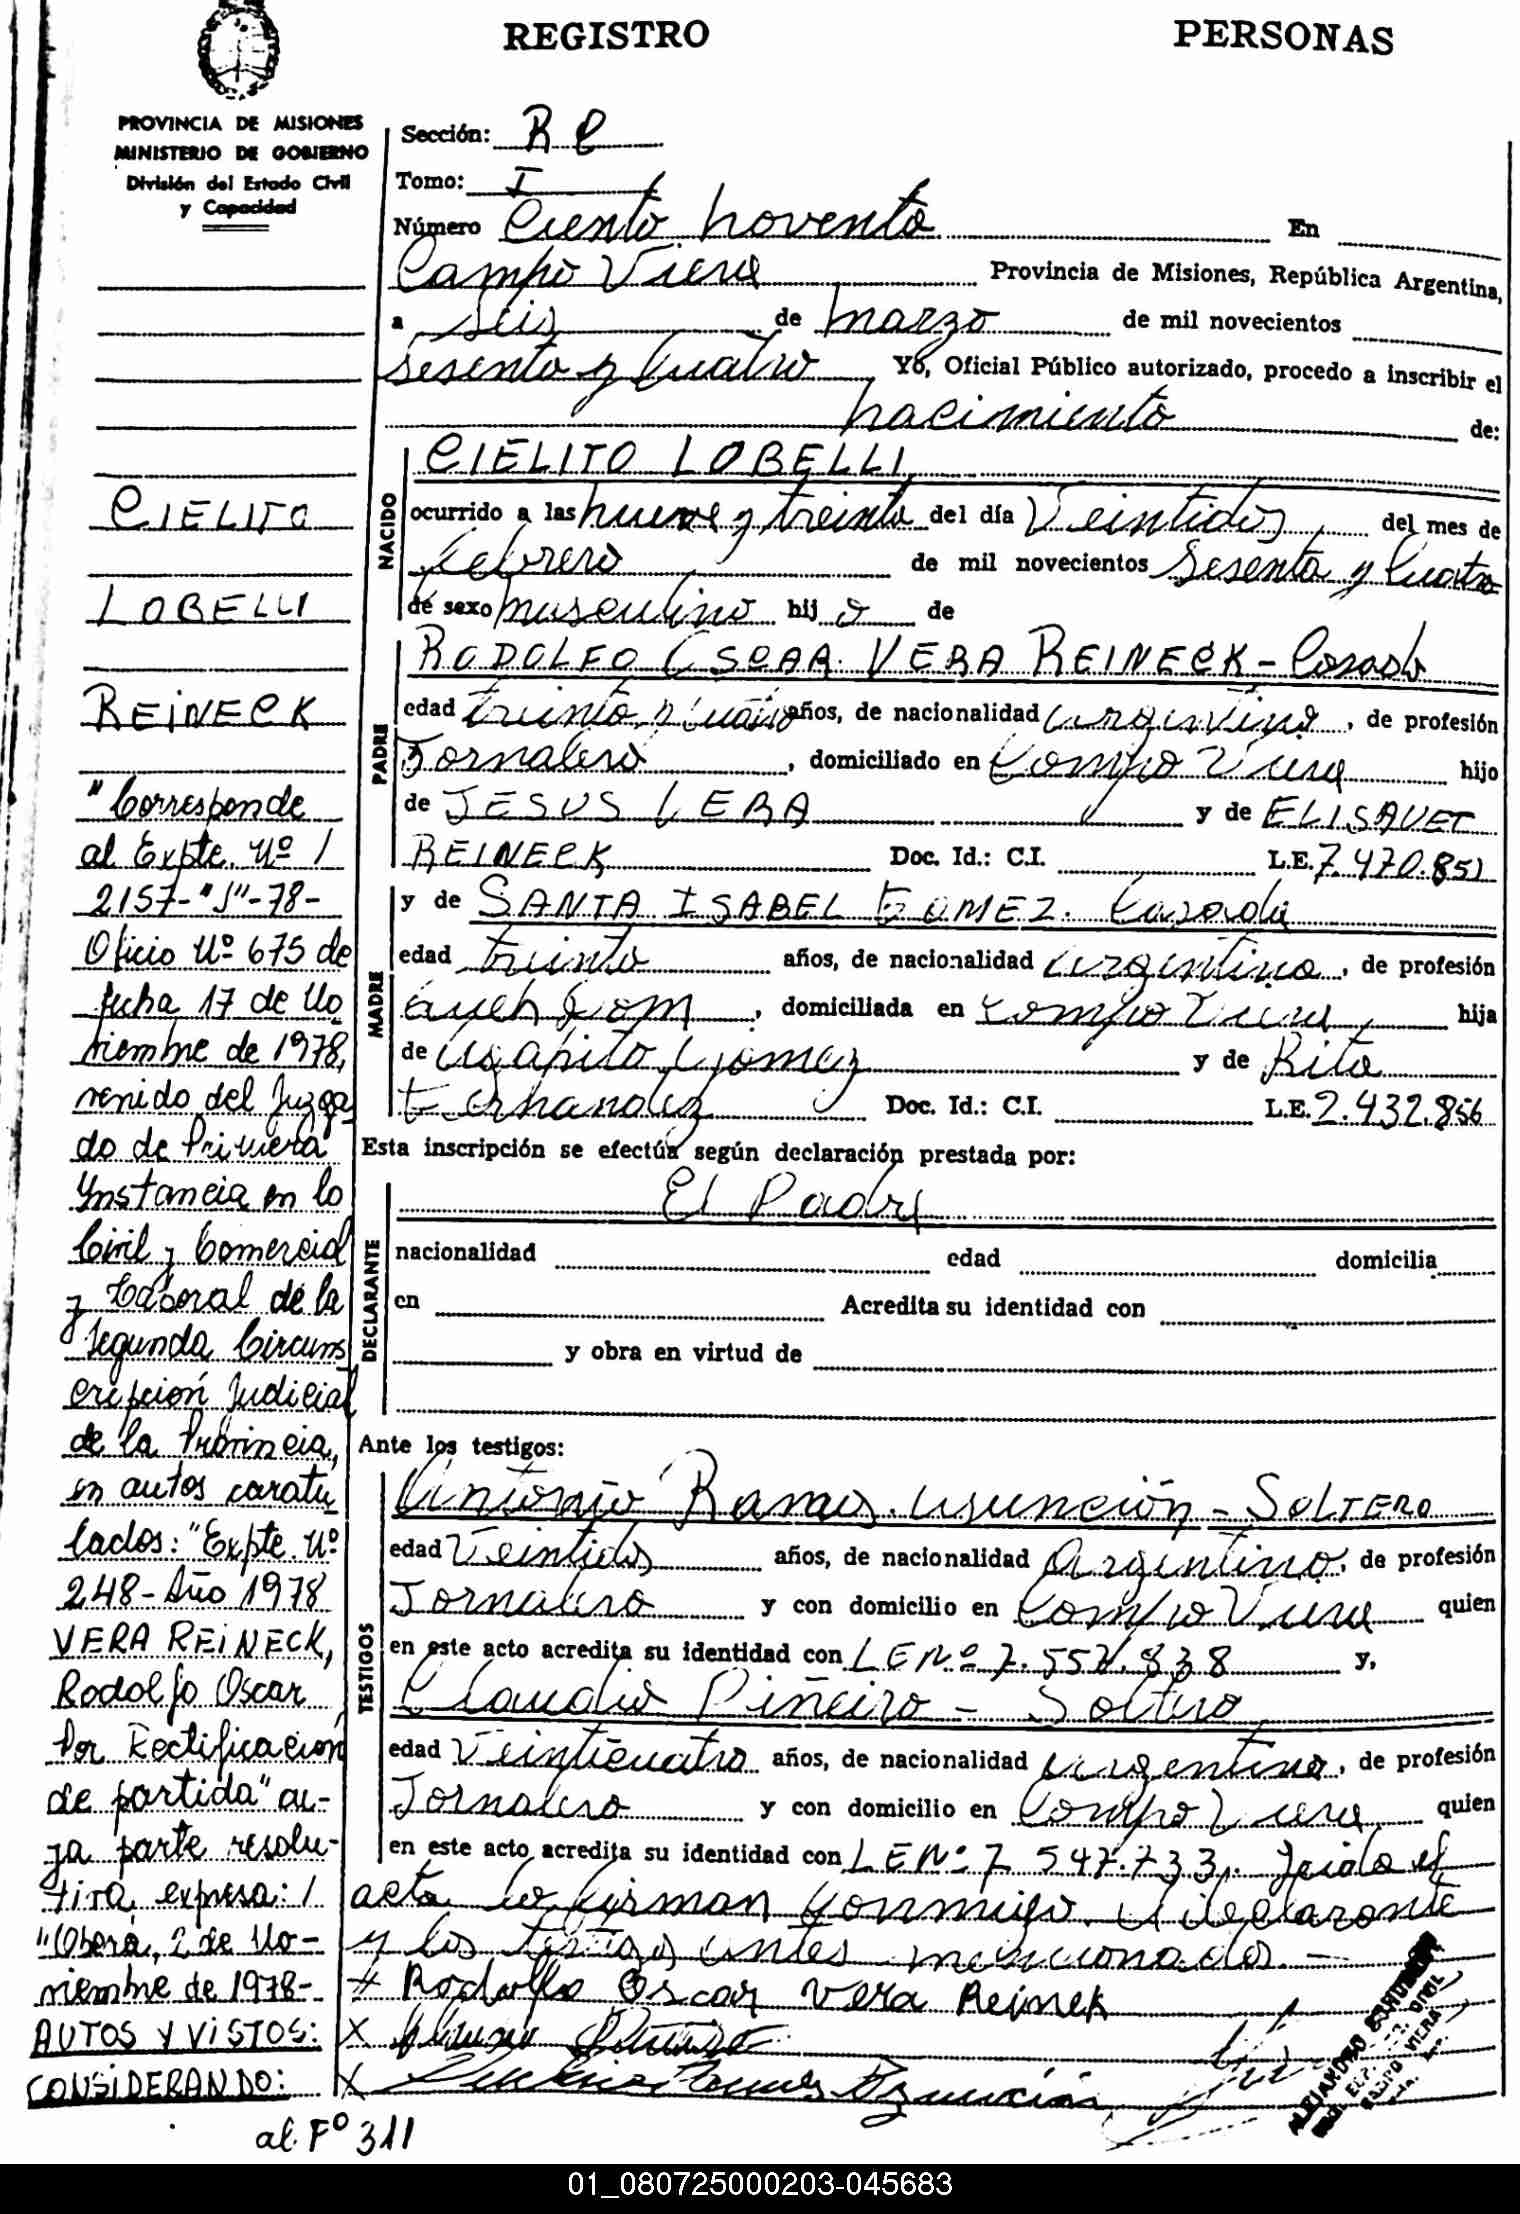 REGISTRO PERSONAS
PROVINCIA DE MISIONES
MINISTERIO DE GOBIERNO
División del Estado Civil
y Capacidad
CIELITO
LOBELLI
REINECK
"Corresponde
al Expte. Nº /
2157-"J"-78-
Oficio Nº 675 de
fecha 17 de No
viembre de 1978,
venido del Juzga
do de Primera
Instancia en lo
Civil y Comercial
y Laboral de la
Segunda Circuns
cripción Judicial
de la Provincia,
en autos caratu
lados: "Expte. Nº
248-Año 1978
VERA REINECK,
Rodolfo Oscar
Por Rectificación
de partida" cu-
ya parte resolu-
tiva, expresa: /
"Oberá, 2 de No-
viembre de 1978-
AUTOS Y VISTOS:
CONSIDERANDO:
al Fº 311
Sección: R C
Tomo: I
Número Ciento noventa En
Campo Viera Provincia de Misiones, República Argentina,
a seis de marzo de mil novecientos
sesenta y cuatro Yo, Oficial Público autorizado, procedo a inscribir el
nacimiento de:
NACIDO
CIELITO LOBELLI
ocurrido a las nueve y treinta del día Veintidos del mes de
febrero de mil novecientos sesenta y cuatro
de sexo masculino hij o de
PADRE
RODOLFO OSCAR VERA REINECK - Casado
edad treinta y cuatro años, de nacionalidad argentino, de profesión
Jornalero, domiciliado en Campo Viera hijo
de JESUS VERA y de ELISAVET
REINECK Doc. Id.: C.I. L.E. 7.470.851
MADRE
y de SANTA ISABEL GOMEZ. Casada
edad treinta años, de nacionalidad argentina, de profesión
queh dom, domiciliada en Campo Viera, hija
de Agapito Gomez y de Rita
Fernandez Doc. Id.: C.I. L.E. 2.432.856
Esta inscripción se efectúa según declaración prestada por:
DECLARANTE
El Padre
nacionalidad edad domicilia
en Acredita su identidad con
y obra en virtud de
Ante los testigos:
TESTIGOS
Antonio Ramos Asunción - SOLTERO
edad Veintidos años, de nacionalidad Argentino, de profesión
Jornalero y con domicilio en Campo Viera quien
en este acto acredita su identidad con LE Nº 7.557.838 y,
Claudio Piñeiro - Soltero
edad Veinticuatro años, de nacionalidad argentino, de profesión
Jornalero y con domicilio en Campo Viera quien
en este acto acredita su identidad con LE Nº 7 547.733. Leida el
acta la firman conmigo, el declarante
y los testigos antes mencionados.-
Rodolfo Oscar Vera Reinek
ALEJANDRO
CAMPO VIERA
01_080725000203-045683